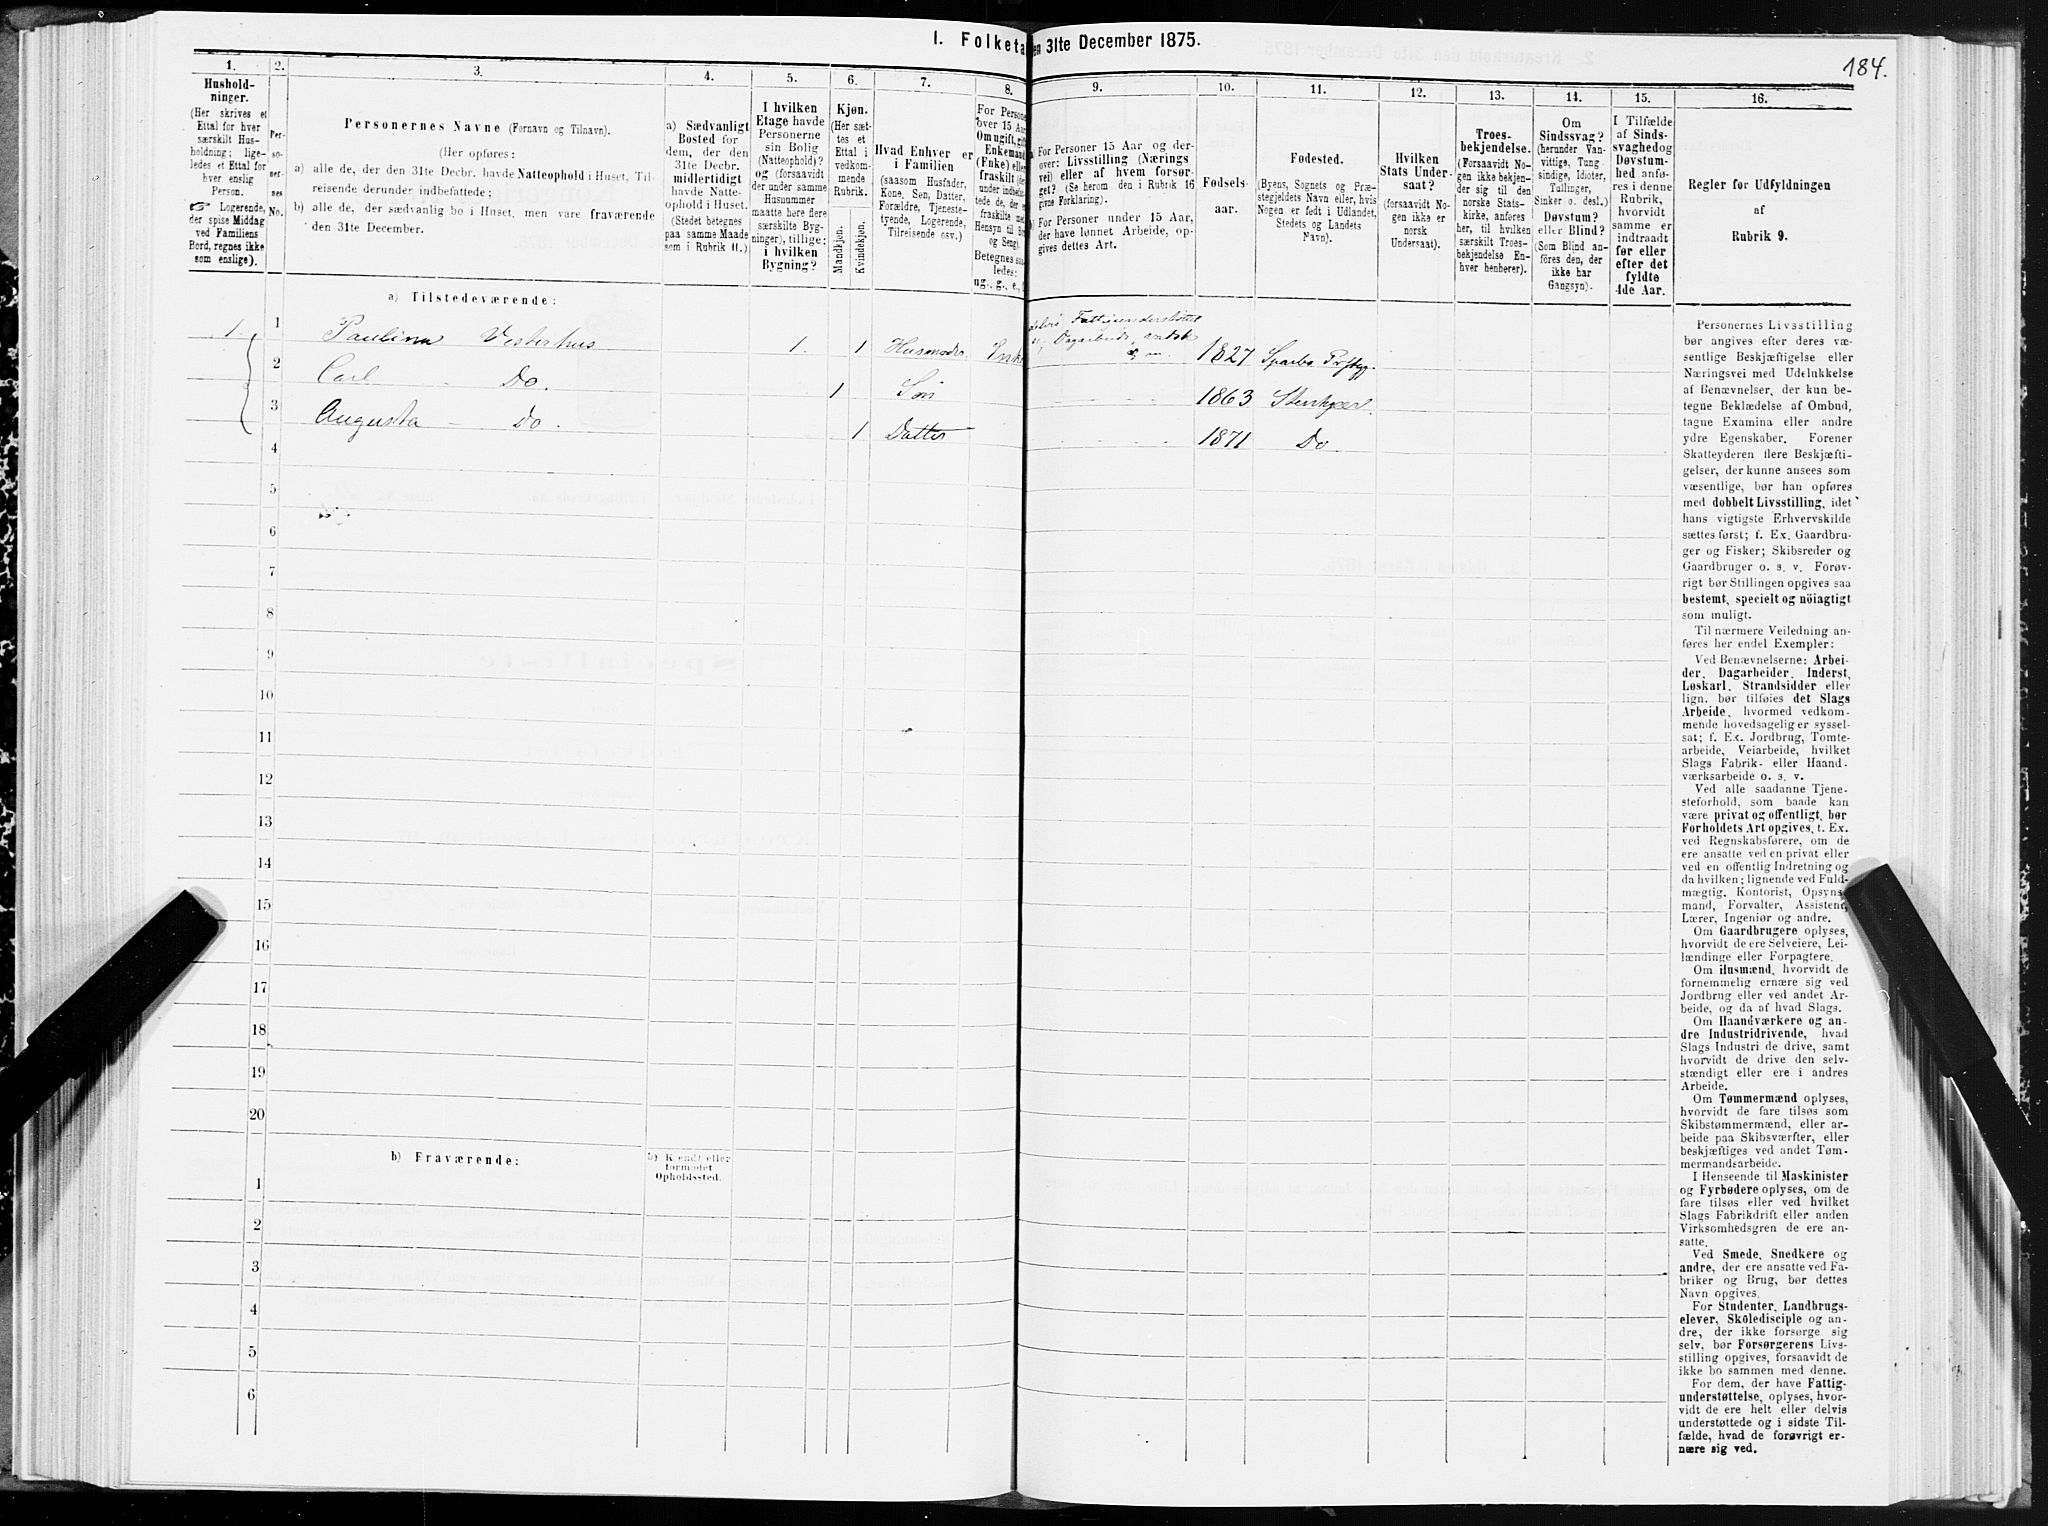 1. Folketa en 31te December 1875.
184.
1.
Hushold-
ninger.
(Her skrives et
Ettal for hver
særskilt Hus-
holdning; lige-
ledes et Ettal for
hver enslig
Person.
☞ Logerende,
der spise Middag
ved Familiens
Bord, regnes ikke
som enslige).
2.
Per-
so-
ner-
nes
No.
3.
Personernes Navne (Fornavn og Tilnavn).
(Her opføres:
a) alle de, der den 31te Decbr. havde Natteophold i Huset, Til-
reisende derunder indbefattede;
b) alle de, der sædvanlig bo i Huset, men vare fraværende
den 31te December.
4.
a) Sædvanligt
Bosted for
dem, der den
31te Decbr.
midlertidigt
havde Natte-
ophold i Huset.
(Stedet betegnes
paa samme Maade
som i Rubrik 11.)
5.
I hvilken
Etage havde
Personerne
sin Bolig
(Natteophold)?
og (forsaavidt
der under samme
Husnummer
maatte høre flere
særskilte Byg-
ninger), tillige:
i hvilken
Bygning?
6.
Kjøn.
(Her sæt-
tes et
Ettal i
vedkom-
mende
Rubrik.
Mandkjøn.
Kvindekjøn.
7.
Hvad Enhver er
i Familien
(saasom Husfader,
Kone, Søn, Datter,
Forældre, Tjeneste-
tyende, Logerende,
Tilreisende osv.)
8.
For Persone
over 15 Aa
Om ugift, gift
Enkemand
(Enke) elle
fraskilt
under indbe
tede de, der e
fraskilte med
Hensyn til B
og Seng).
Betegnes saa
ledes:
ug., g., e.,
9.
a) For Personer 15 Aar og der-
over: Livsstilling (Nærings
vei) eller af hvem forsør-
get? (Se herom den i Rubrik 16
givne Forklaring).
b) For Personer under 15 Aar,
der have lønnet Arbeide, op-
gives dettes Art.
10.
Fødsels-
aar.
11.
Fødested.
(Byens, Sognets og Præ-
stegjeldets Navn eller, hvis
Nogen er født i Udlandet,
Stedets og Landets
Navn).
12.
Hvilken
Stats Under-
saat?
(forsaavidt No-
gen ikke er
norsk
Undersaat).
13.
Troes-
bekjendelse.
(Forsaavidt No-
gen ikke bekjen-
der sig til den
norske Stats-
kirke, anføres
her, til hvilken
særskilt Troes-
bekjendelse En-
hver henhører).
14.
Om
Sindssvag?
(herunder Van-
vittige, Tung
sindige, Idioter,
Tullinger,
Sinker o. desl.)
Døvstum?
eller Blind?
(Som Blind an-
føres den, der
ikke har
Gangsyn).
15.
I Tilfælde
af Sinds-
svaghed og
Døvstum-
hed anfø-
res i denne
Rubrik,
hvorvidt
samme er
indtraadt
før eller
efter det
fyldte
4de Aar.
16.
Regler før Udfyldningen
af
Rubrik 9.
a) Tilstedeværende:
1 1 Paulina Vesterhus 1. 1 Husmoder Enke delvis Fattigunderstøttet
Dagarbeide, vadsk
1827 Sparbo Prstgj.
2 Carl Do. 1 Søn 1863 Stenkjær.
3 Augusta Do. 1 Datter 1871 Do
4
5
6
7
8
9
10
11
12
13
14
15
16
17
18
19
20
b) Fraværende:
b) Kjendt eller
formodet
Opholdssted.
1
2
3
4
5
6
Personernes Livsstilling
bør angives efter deres væ-
sentlige Beskjæftigelse eller
Næringsvei med Udelukkelse
af Benævnelser, der kun be-
tegne Beklædelse af Ombud,
tagne Examina eller andre
ydre Egenskaber. Forener
Skatteyderen flere Beskjæfti-
gelser, der kunne ansees som
væsentlige, bør han opføres
med dobbelt Livsstilling, idet
hans vigtigste Erhvervskilde
sættes først; f. Ex. Gaardbru-
ger og Fisker; Skibsreder og
Gaardbruger o. s. v. Forøv-
rigt bør Stillingen opgives saa
bestemt, specielt og nöiagtigt
som muligt.
Til nærmere Veiledning an-
føres her endel Exempler:
Ved Benævnelserne: Arbei-
der, Dagarbeider, Inderst,
Løskarl, Strandsidder eller
lign. bør tilføies det Slags
Arbeide, hvormed vedkom-
mende hovedsagelig er syssel-
sat; f. Ex. Jordbrug, Tomte-
arbeide, Veiarbeide, hvilket
Slags Fabrik- eller Haand-
værksarbeide o. s. v.
Ved alle saadanne Tjene-
steforhold, som baade kan
være privat og offentligt, bør
Forholdets Art opgives, t. Ex.
ved Regnskabsførere, om de
ere ansatte ved en privat eller
ved en offentlig Indretning og
da hvilken; lignende ved Fuld-
mægtig, Kontorist, Opsyns-
mand, Forvalter, Assistent,
Lærer, Ingeniør og andre.
Om Gaardbrugere oplyses,
hvorvidt de ere Selveiere, Lei-
lændinge eller Forpagtere.
Om Husmænd, hvorvidt de
fornemmelig ernære sig ved
Jordbrug eller ved andet Ar-
beide, og da af hvad Slags.
Om Haandværkere og an-
dre Industridrivende, hvad
Slags Industri de drive, samt
hvorvidt de drive den selv-
stændigt eller ere i andres
Arbeide.
Om Tømmermænd oplyses,
hvorvidt de fare tilsøs som
Skibstømmermænd, eller ar-
beide paa Skibsværfter, eller
beskjæftiges ved andet Tøm-
mermandsarbeide.
I Henseende til Maskinister
og Fyrbødere oplyses, om de
fare tilsøs eller ved hvilket
Slags Fabrikdrift eller anden
Virksomhedsgren de ere an-
satte.
Ved Smede, Snedkere og
andre, der ere ansatte ved Fa-
briker og Brug, bør dettes
Navn opgives.
For Studenter, Landbrugs-
elever, Skoledisciple og an-
dre, der ikke forsørge sig
selv, bør Forsørgerens Livs-
stilling opgives, forsaavidt de
ikke bo sammen med denne.
For dem, der have Fattig-
understøttelse, oplyses, hvor-
vidt de ere helt eller delvis
understøttede og i sidste Til-
fælde, hvad de forøvrigt er-
nære sig ved.